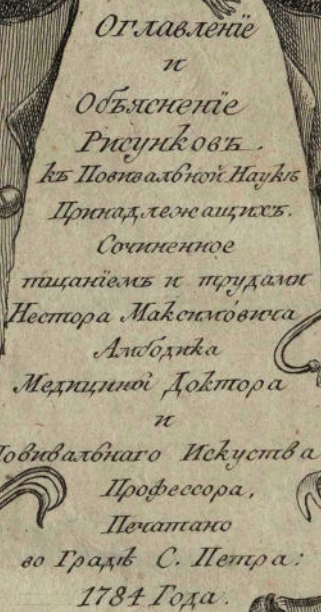 Оглавленїе
и
Объясненїе
Рисунковъ.
къ Повивальной Наукѣ
Принадлежащихъ.
Сочиненное
тщанїемъ и трудами
Нестора Максимо́вича
Амбодика
Медицины Доктора
и
Повивальнаго Искуства
Профессора,
Печатано
во Градѣ С. Петра:
1784 Года.